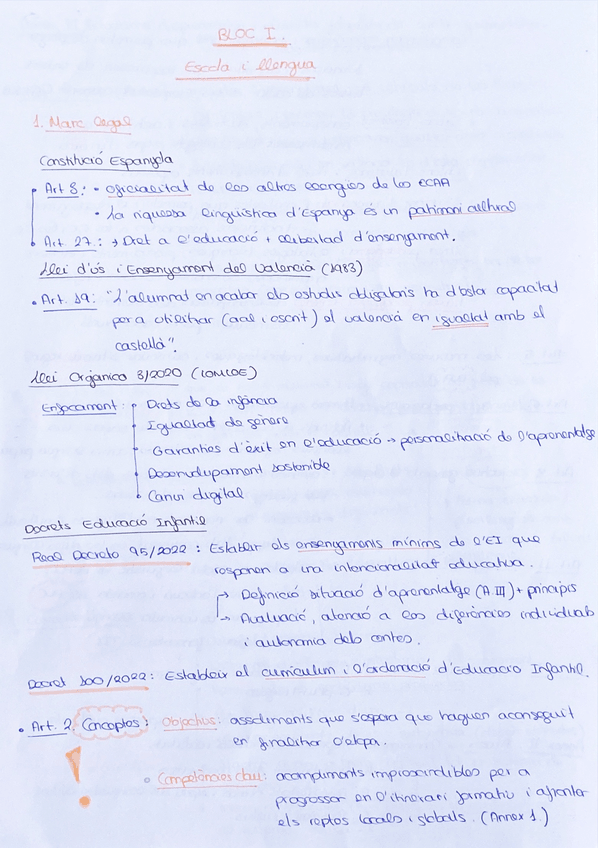 BLOC I.
Escola i llengua
1. Marc legal
Constitució Espanyola
Art 8: • oficialitat de les altres llengües de les CCAA
• La riquesa lingüística d'Espanya és un patrimoni cultural
Art. 27: → Dret a l'educació + llibertad d'ensenyament.
Llei d'ús i Ensenyament del Valencià (1983)
• Art. 19: "L'alumnat en acabar els estudis obligatoris ha d'estar capacitat
per a utilitzar (oral i escrit) el valencià en igualtat amb el
castellà".
Llei Orgànica 3/2020 (LOMLOE)
Enfocament: • Drets de la infància
• Igualtat de gènere
• Garanties d'èxit en l'educació → personalització de l'aprenentatge
• Desenvolupament sostenible
• Canvi digital
Decrets Educació Infantil
Real Decreto 95/2022: Establir els ensenyaments mínims de l'EI que
responen a una intencionalitat educativa.
→ Definició situació d'aprenentatge (A.III) + principis
→ Avaluació, atenció a les diferències individuals
i autonomia dels centres.
Decret 100/2022: Establix el currículum i l'ordenació d'Educació Infantil.
• Art. 2. Conceptes: Objectius: assoliments que s'espera que hagen aconseguit
en finalitzar l'etapa.
! • Competències clau: acompliments imprescindibles per a
progressar en l'itinerari formatiu i afrontar
els reptes locals i globals. (Annex 1.)